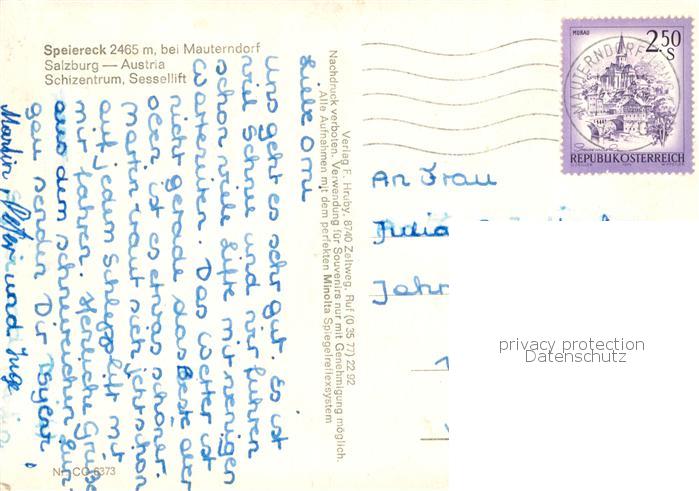 Speiereck 2465 m, bei Mauterndorf
Salzburg — Austria
Schizentrum, Sessellift
Liebe Omi
uns geht es sehr gut. Es ist
viel Schnee und wir fuhren
schon viele Lifte mit wenigen
Wartezeiten. Das Wetter ist
nicht gerade das Beste aber
oben ist es etwas schöner.
Martin traut sich jetzt schon
auf jedem Schlepplift mit
mir fahren. Herzliche Grüße
aus dem schneereichen Lun-
gau senden Dir
Martin Peter und Inge
Nr. CO 6373
Verlag F. Hruby, 8740 Zeltweg, Ruf (0 35 77) 22 92
Nachdruck verboten. Verwendung für Souvenirs nur mit Genehmigung möglich.
Alle Aufnahmen mit dem perfekten Minolta Spiegelreflexsystem
MURAU
2.50
S
REPUBLIK ÖSTERREICH
MAUTERNDORF
An Frau
Julia
Jahn
privacy protection
Datenschutz